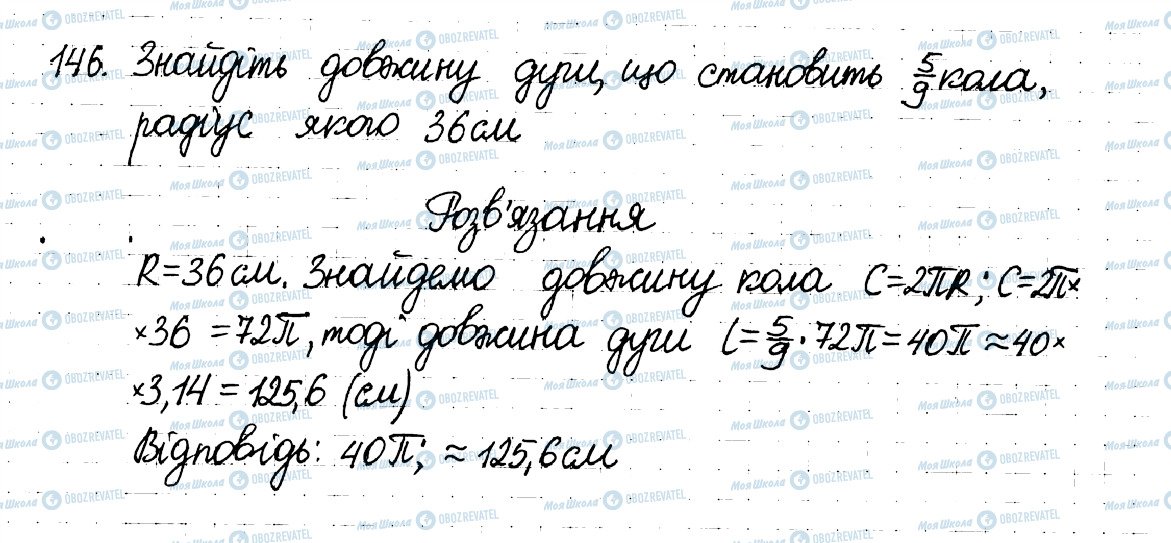 146. Знайдіть довжину дуги, що становить 5/9 кола,
радіус якого 36 см
Розв'язання
R=36 см. Знайдемо довжину кола C=2πR; C=2π×
×36 =72π, тоді довжина дуги l=5/9·72π=40π≈40×
×3,14=125,6 (см)
Відповідь: 40π; ≈125,6 см